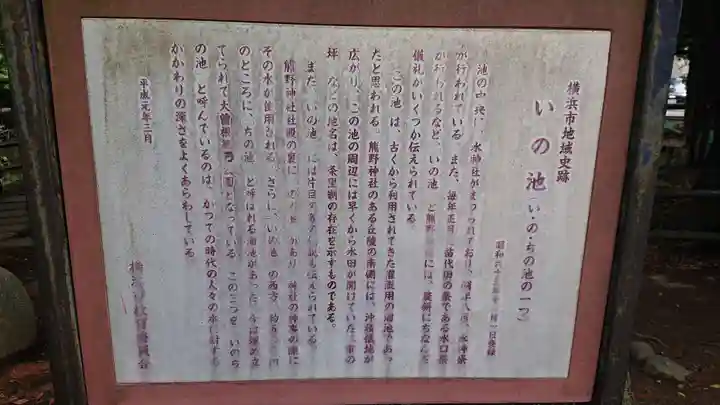 横浜市地域史跡
いの池(い・の・ちの池の一つ)
昭和六十三年 月一日登録
池の中央に、水神社がまつられており、 水神祭
が行われている。また、毎年正月 苗代田の祭である水口祭
が行われるなど、いの池 と熊野 には、農耕にちなんだ
儀礼がいくつか伝えられている。
この池 は、古くから利用されてきた灌漑用の溜池であっ
たと思われる。熊野神社のある丘陵の南側には、沖積低地が
広がり、この池の周辺には早くから水田が開けていた。 市の
坪 などの地名は、条里制の存在を示すものである。
また、いの池 には片目 の 伝説も伝えられている。
熊野神社社殿の裏に、 の があり、神社の神事の際に
その水が使用される。さらに、いの池 の西方、約
のところに、ちの池 と呼ばれる溜池があったが、今は埋め立
てられて大曽根 公園となっている。この三つを いのち
の池 と呼んでいるのは、かつての時代の人々の水に対する
かかわりの深さをよくあらわしている。
平成元年三月
横浜市教育委員会